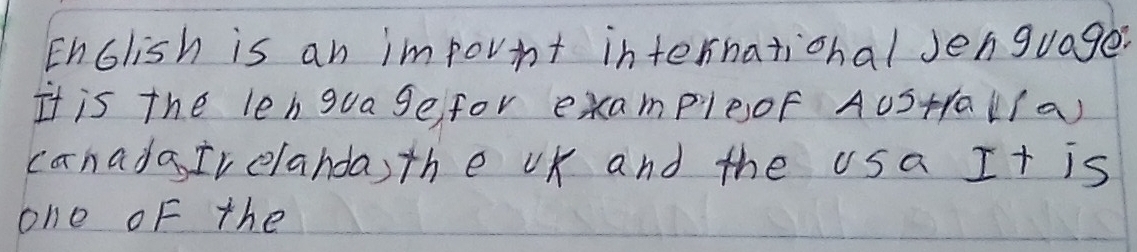 English is an impornt international lenguage.
It is the lenguage, for example, of Australia,
canada, Irelanda, the UK and the usa It is
one of the